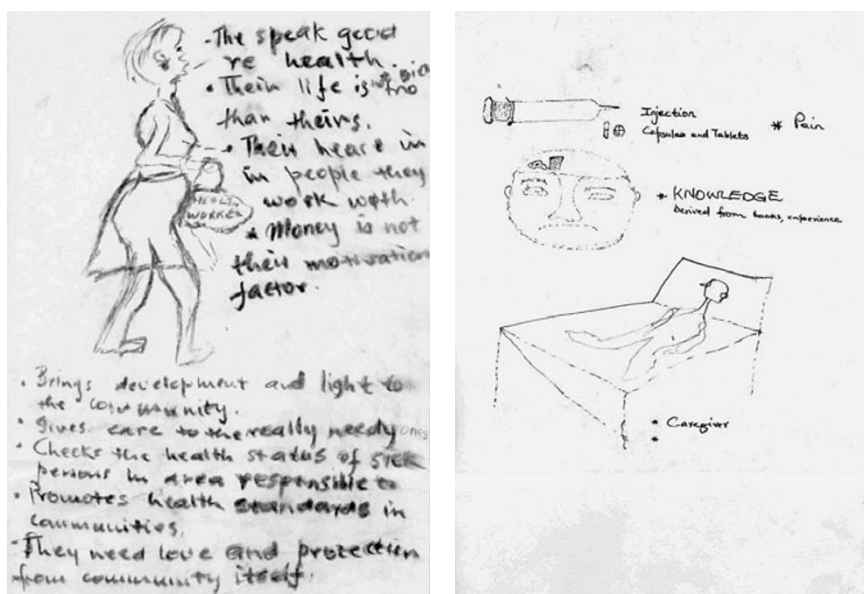 • The speak good
re health.
• Their life is
than theirs.
• Their heare in
in people they
work woth.
HEALTH
WORKER
* Money is not
their motivation
factor.
• Brings development and light to
the community.
• Gives care to the really needy ones
• Checks the health status of sick
persons in area responsible to
• Promotes health standards in
communities.
• They need love and protection
from community itself.
Injection
Capsules and Tablets
* Pain
* KNOWLEDGE
Derived from books, experience
* Caregiver
*